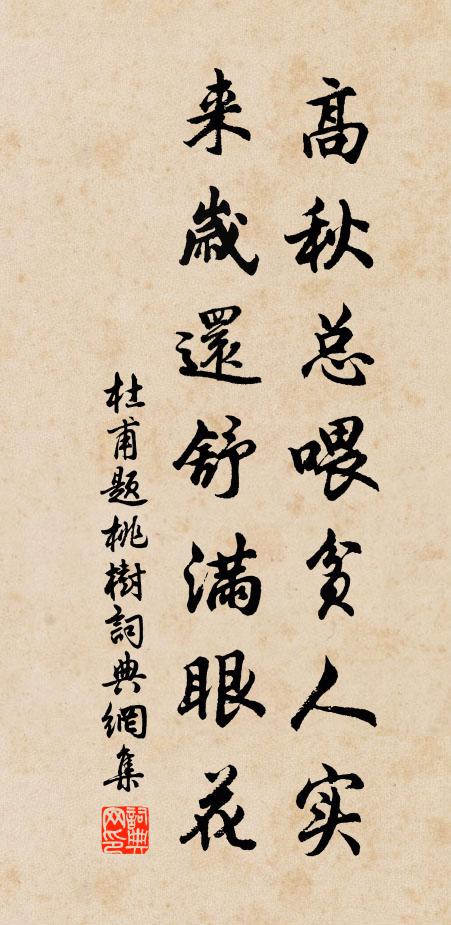 高秋总喂贫人实
来歲還舒满眼花
杜甫题桃樹詞典網集
詞典网印